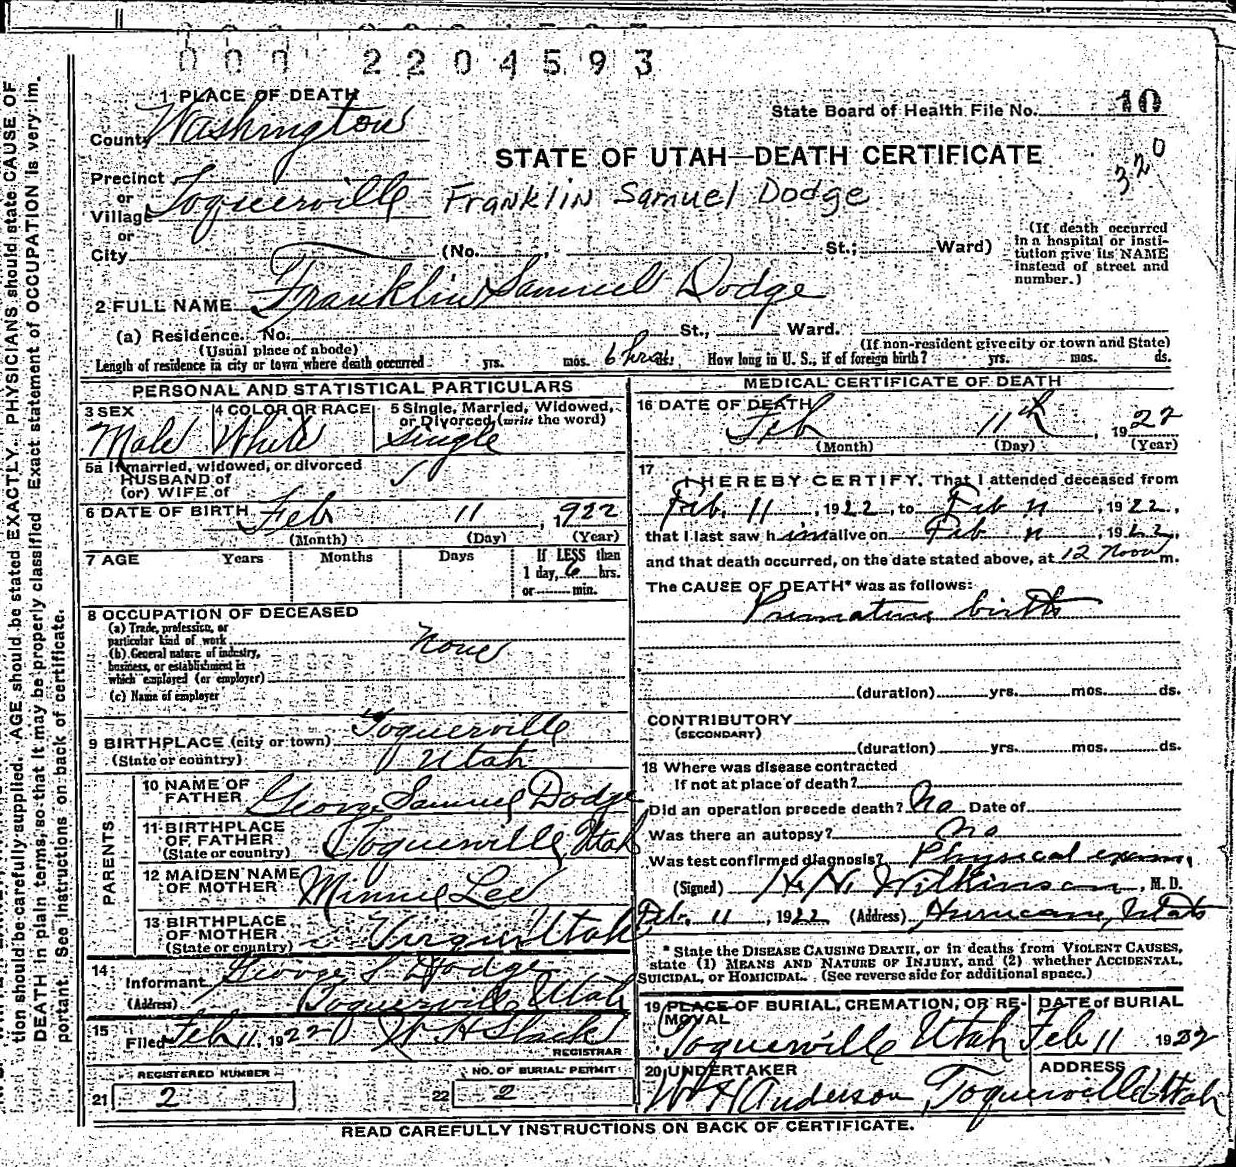 000 2204593
1 PLACE OF DEATH
State Board of Health File No. 10
County Washington
STATE OF UTAH—DEATH CERTIFICATE
320
Precinct
or
Village Toquerville Franklin Samuel Dodge
or
City (No. St.; Ward)
(If death occurred
in a hospital or insti-
tution give its NAME
instead of street and
number.)
2 FULL NAME Franklin Samuel Dodge
(a) Residence. No. St., Ward.
(Usual place of abode) (If non-resident give city or town and State)
Length of residence in city or town where death occurred yrs. mos. 6 hrs. How long in U. S., if of foreign birth? yrs. mos. ds.
PERSONAL AND STATISTICAL PARTICULARS
3 SEX Male
4 COLOR OR RACE White
5 Single, Married, Widowed,
or Divorced (write the word)
Single
5a If married, widowed, or divorced
HUSBAND of
(or) WIFE of
6 DATE OF BIRTH Feb 11, 1922
(Month) (Day) (Year)
7 AGE Years Months Days If LESS than
1 day, 6 hrs.
or min.
8 OCCUPATION OF DECEASED
(a) Trade, profession, or
particular kind of work None
(b) General nature of industry,
business, or establishment in
which employed (or employer)
(c) Name of employer
9 BIRTHPLACE (city or town) Toquerville
(State or country) Utah
PARENTS
10 NAME OF
FATHER George Samuel Dodge
11 BIRTHPLACE
OF FATHER Toquerville Utah
(State or country)
12 MAIDEN NAME
OF MOTHER Minnie Lee
13 BIRTHPLACE
OF MOTHER Virgin Utah
(State or country)
14
Informant George S Dodge
(Address) Toquerville Utah
15
Filed Feb 11, 1922 W. H Slack
REGISTRAR
REGISTERED NUMBER
21 2
NO. OF BURIAL PERMIT
22 2
MEDICAL CERTIFICATE OF DEATH
16 DATE OF DEATH
Feb 11th, 1922
(Month) (Day) (Year)
17
I HEREBY CERTIFY, That I attended deceased from
Feb. 11, 1922, to Feb 11, 1922,
that I last saw him alive on Feb 11, 1922,
and that death occurred, on the date stated above, at 12 Noon m.
The CAUSE OF DEATH* was as follows:
Premature birth
(duration) yrs. mos. ds.
CONTRIBUTORY
(SECONDARY)
(duration) yrs. mos. ds.
18 Where was disease contracted
If not at place of death?
Did an operation precede death? No Date of
Was there an autopsy? No
Was test confirmed diagnosis? Physical exam.
(Signed) Wilkinson, M. D.
Feb. 11, 1922 (Address) Hurricane, Utah
* State the DISEASE CAUSING DEATH, or in deaths from VIOLENT CAUSES,
state (1) MEANS AND NATURE OF INJURY, and (2) whether ACCIDENTAL,
SUICIDAL, or HOMICIDAL. (See reverse side for additional space.)
19 PLACE OF BURIAL, CREMATION, OR RE-
MOVAL
Toquerville Utah
DATE of BURIAL
Feb 11 1922
20 UNDERTAKER
W H Anderson
ADDRESS
Toquerville Utah
READ CAREFULLY INSTRUCTIONS ON BACK OF CERTIFICATE.
tion should be carefully supplied. AGE should be stated EXACTLY. PHYSICIANS should state CAUSE OF
DEATH in plain terms, so that it may be properly classified. Exact statement of OCCUPATION is very im-
portant. See instructions on back of certificate.